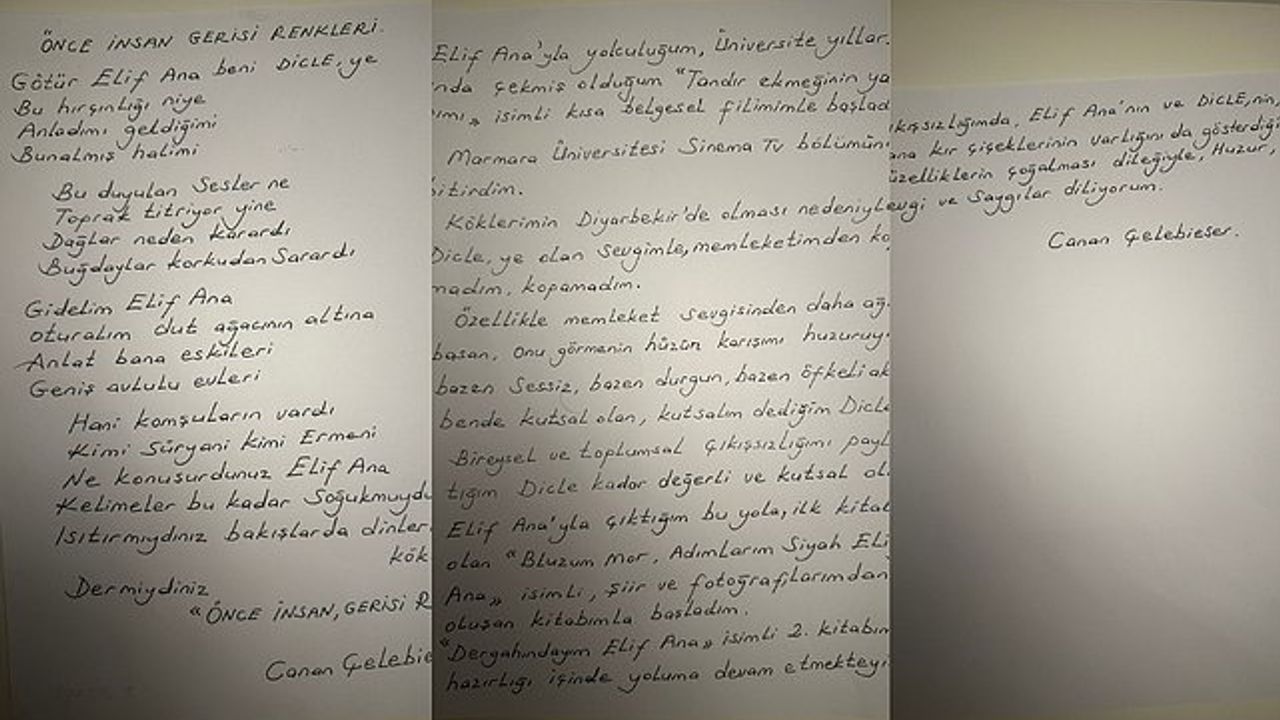 ÖNCE İNSAN GERİSİ RENKLERİ.
Götür Elif Ana beni DİCLE, ye
Bu hırçınlığı niye
Anladımı geldiğimi
Bunalmış halimi
Bu duyulan Sesler ne
Toprak titriyor yine
Dağlar neden karardı
Buğdaylar korkudan Sarardı
Gidelim Elif Ana
oturalım dut ağacının altına
Anlat bana eskileri
Geniş avlulu evleri
Hani komşuların vardı
Kimi Süryani kimi Ermeni
Ne konuşurdunuz Elif Ana
Kelimeler bu kadar Soğukmuydu
Isıtırmıydınız bakışlarda dinler
kök
Dermiydiniz
"ÖNCE İNSAN, GERİSİ R
Canan Çelebie
Elif Ana'yla yolculuğum, Üniversite yıllar.
nda çekmiş olduğum "Tandır ekmeğinin ya
ımı" isimli kısa belgesel filimimle başlad
Marmara Üniversitesi Sinema Tv bölümün
itirdim.
Köklerimin Diyarbekir'de olması nedeniyle
Dicle, ye olan Sevgimle, memleketimden ko
madım, kopamadım.
Özellikle memleket sevgisinden daha ağ.
basan, onu görmenin hüzün karışımı huzuruy
bazen Sessiz, bazen durgun, bazen öfkeli ak
bende kutsal olan, kutsalım dediğim Dicle
Bireysel ve toplumsal çıkışsızlığımı payl
tığım Dicle kadar değerli ve kutsal ol
Elif Ana'yla çıktığım bu yola, ilk kitab
olan "Bluzum Mor, Adımlarım Siyah Eli
Ana" isimli, şiir ve fotoğraflarımdan
oluşan kitabımla başladım.
"Dergahındayım Elif Ana" isimli 2. kitabım
hazırlığı içinde yoluma devam etmekteyi
ıkışsızlığımda, Elif Ana'nın ve DİCLE, nin,
ana kır çiçeklerinin varlığını da gösterdiği
üzelliklerin çoğalması dileğiyle, Huzur,
evgi ve Saygılar diliyorum.
Canan Çelebieser.